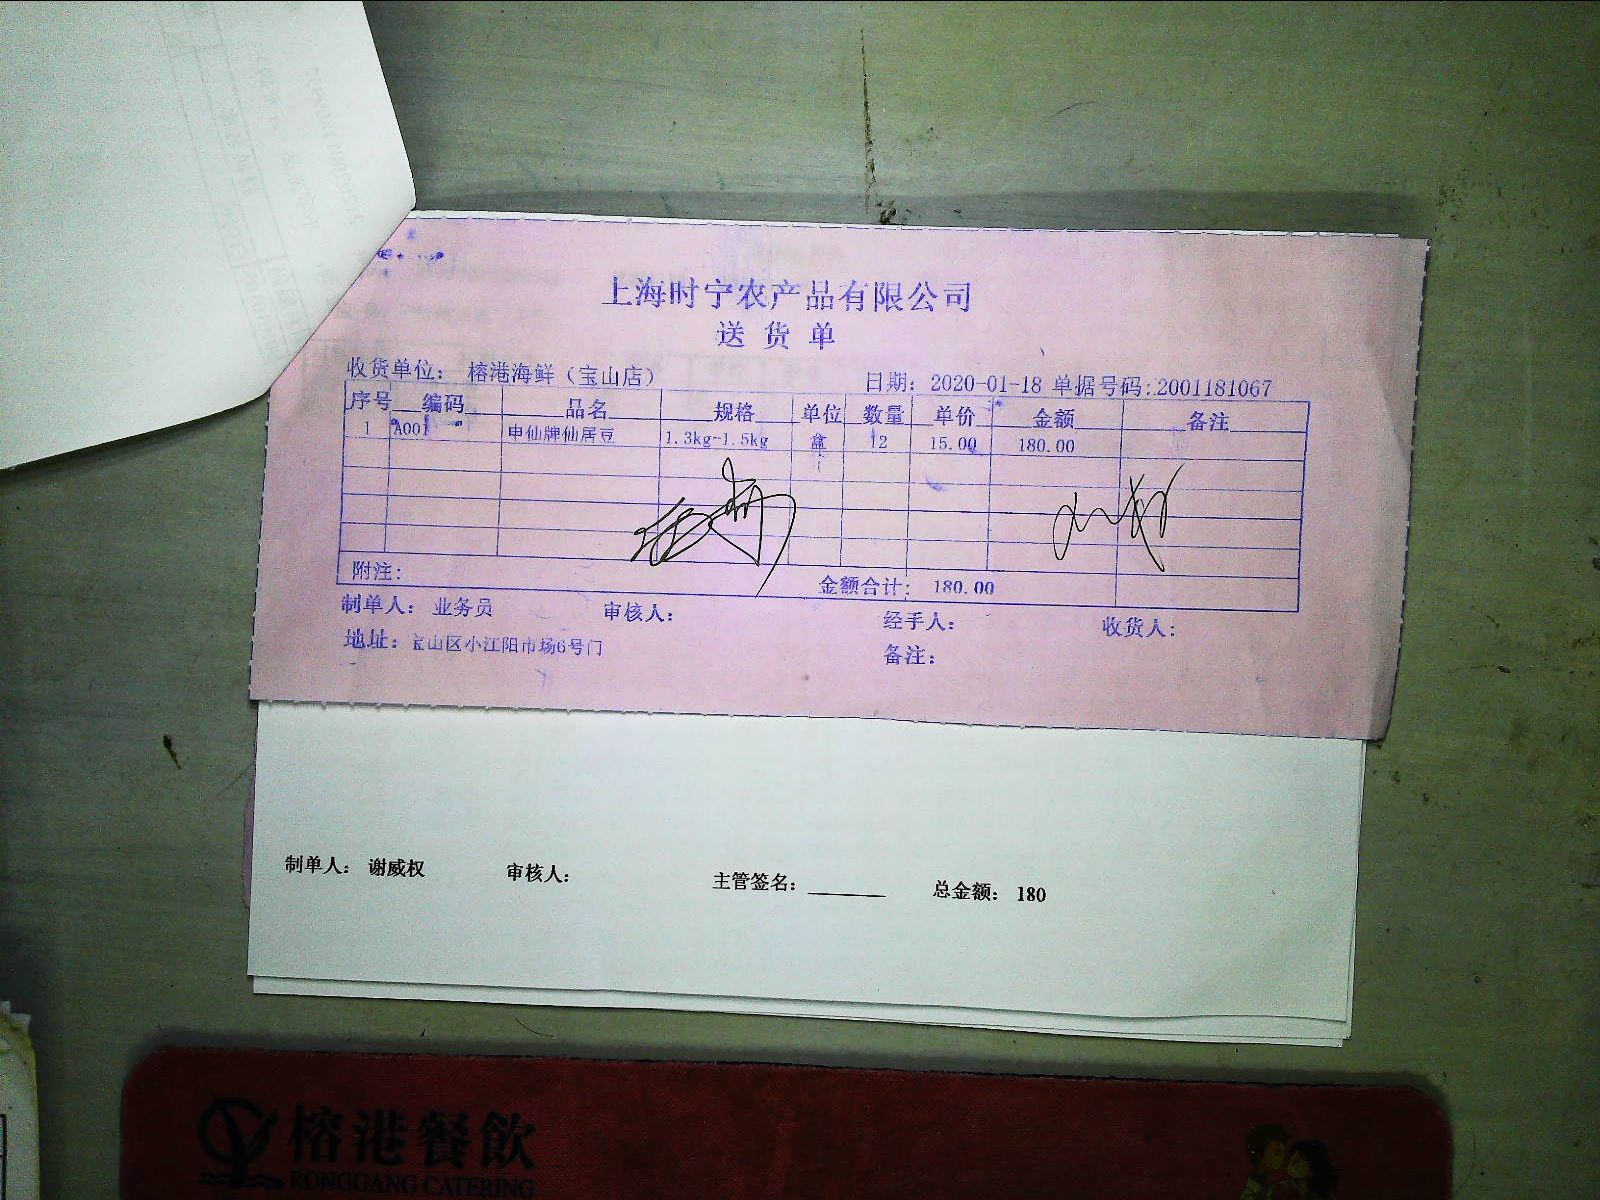 上海时宁农产品有限公司
送货单
收货单位： 榕港海鲜（宝山店） 日期： 2020-01-18 单据号码:2001181067
序号 编码 品名 规格 单位 数量 单价 金额 备注
1 A001 申仙牌仙居豆 1.3kg-1.5kg 盒 12 15.00 180.00
附注: 金额合计: 180.00
制单人: 业务员 审核人: 经手人: 收货人:
地址: 宝山区小江阳市场6号门 备注:
制单人： 谢威权 审核人: 主管签名: 总金额: 180
榕港餐飲
RONGGANG CATERING